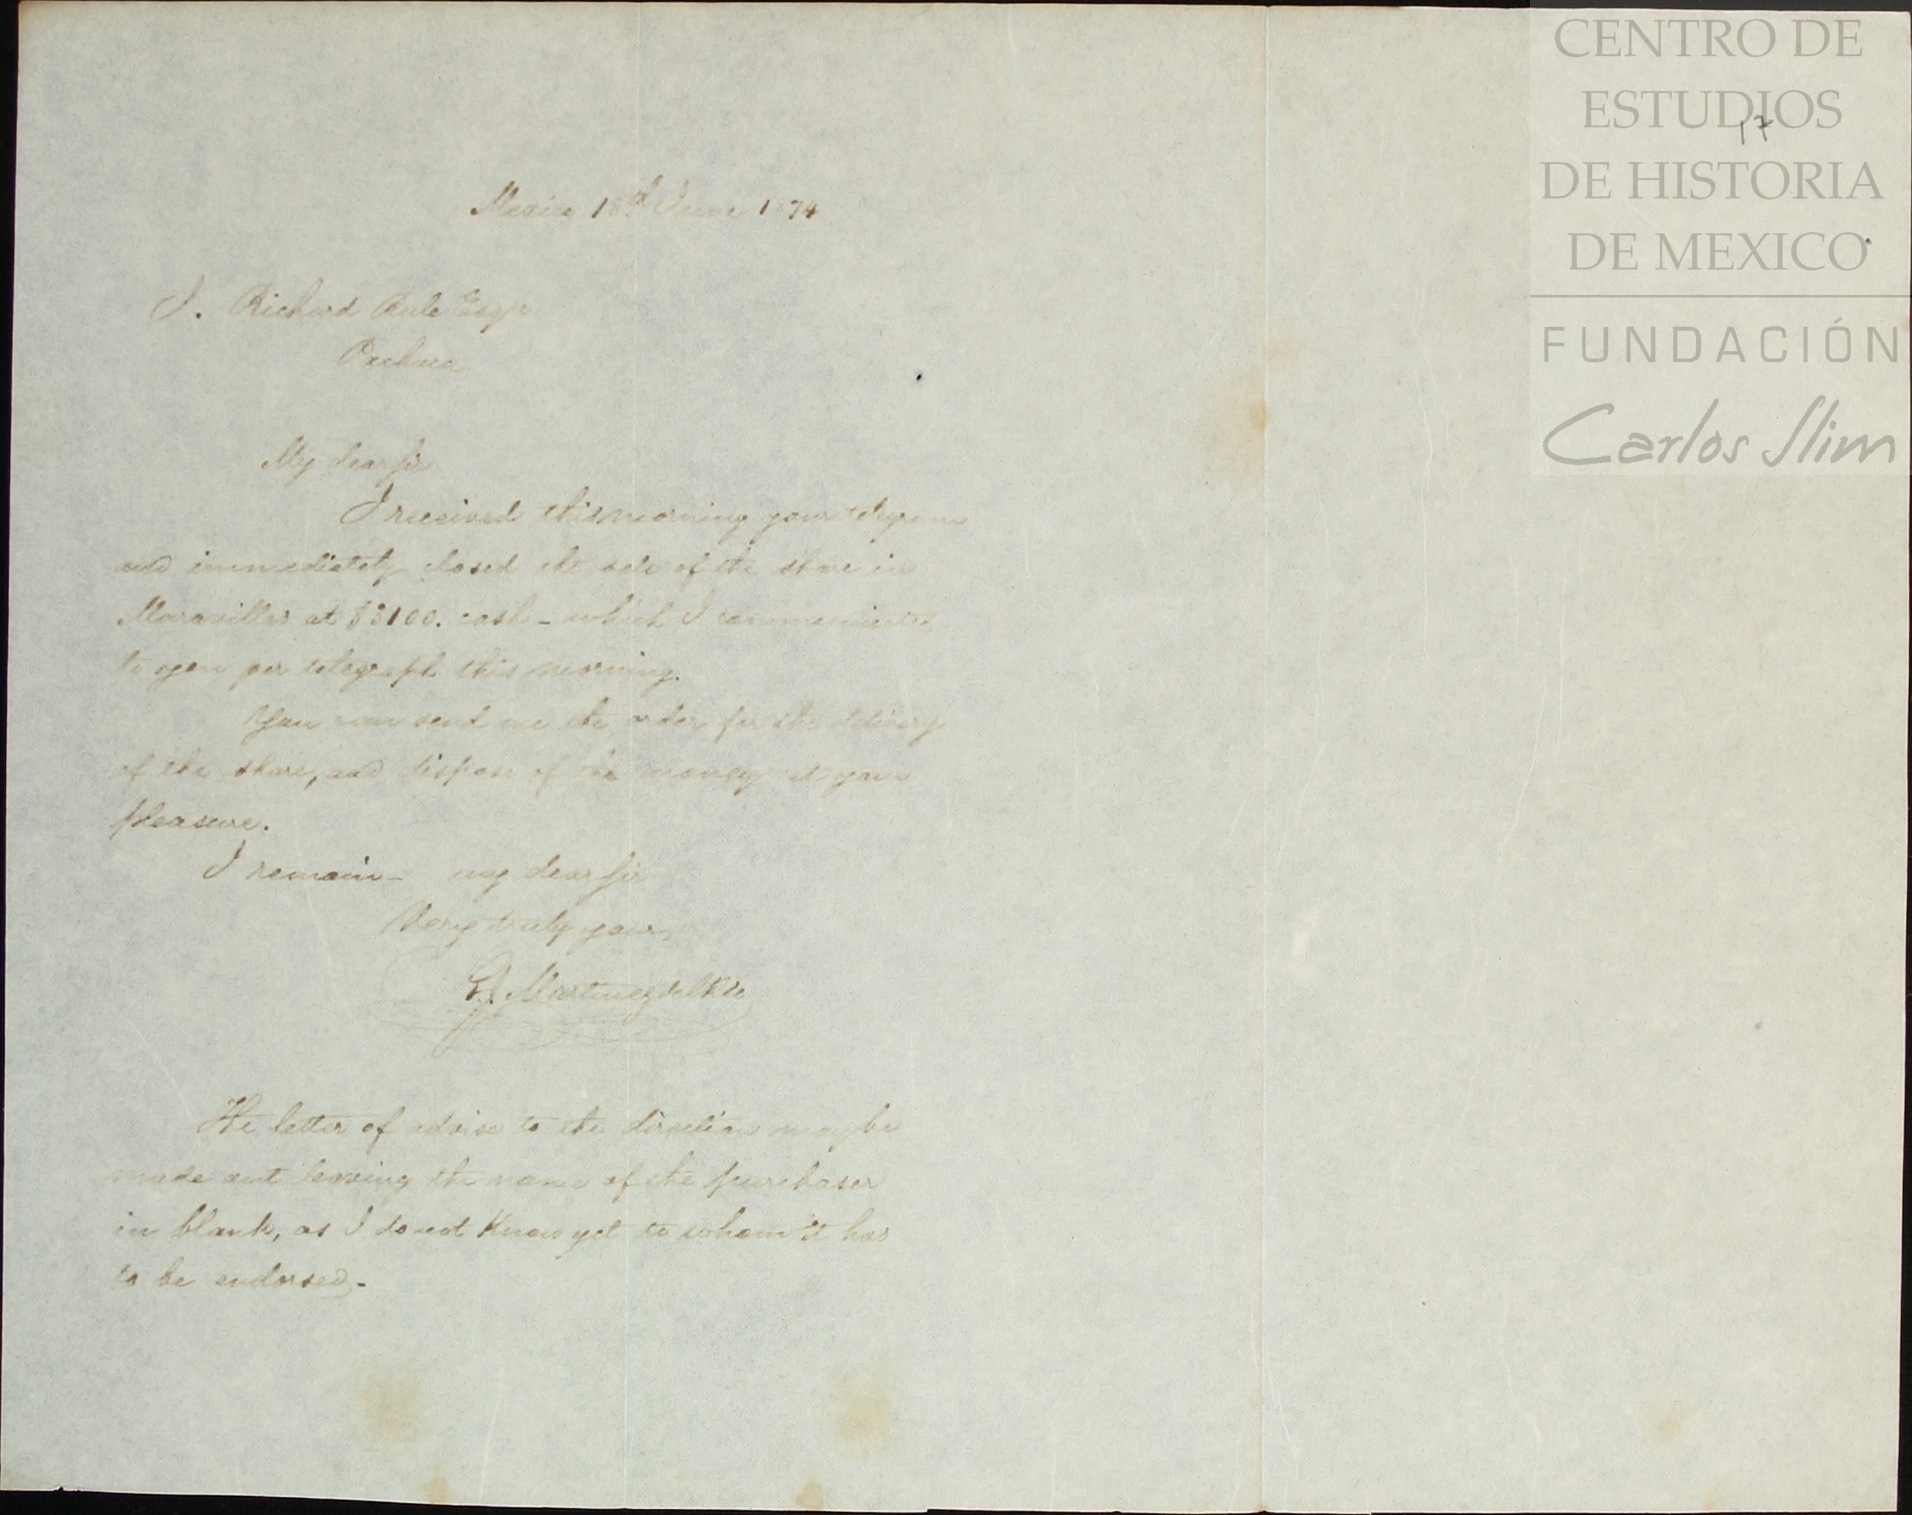 Mexico 18th June 1874
J. Richard Rule Esqr
Pachuca
My dear Sir
I received this morning your telegram
and immediately closed the sale of the share in
Maravillas at $3100. cash - which I communicated
to you per telegraph this morning.
You can send me the order for the delivery
of the share, and dispose of the money at your
pleasure.
I remain - my dear Sir
Very truly yours
Martinez del Rio
The letter of advise to the direction may be
made out leaving the name of the purchaser
in blank, as I do not Know yet to whom it has
to be endorsed.-
17
CENTRO DE
ESTUDIOS
DE HISTORIA
DE MEXICO
FUNDACIÓN
Carlos Slim